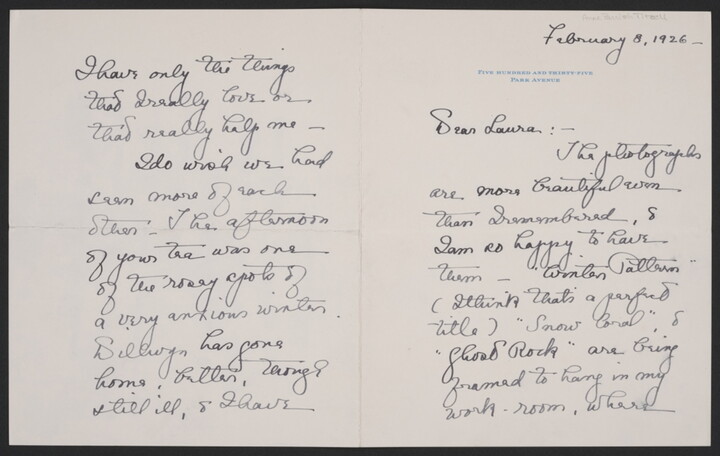 February 8, 1926 —
FIVE HUNDRED AND THIRTY-FIVE
PARK AVENUE
Dear Laura: —
The photographs
are more beautiful even
than I remembered, &
I am so happy to have
them — "Winter Pattern"
(I think that's a perfect
title) "Snow Coral", &
"Ghost Rock" are being
framed to hang in my
work-room, where
I have only the things
that I really love or
that really help me —
I do wish we had
seen more of each
other. The afternoon
of your tea was one
of the rosey spots of
a very anxious winter.
Dillwyn has gone
home, better, though
still ill, & I have